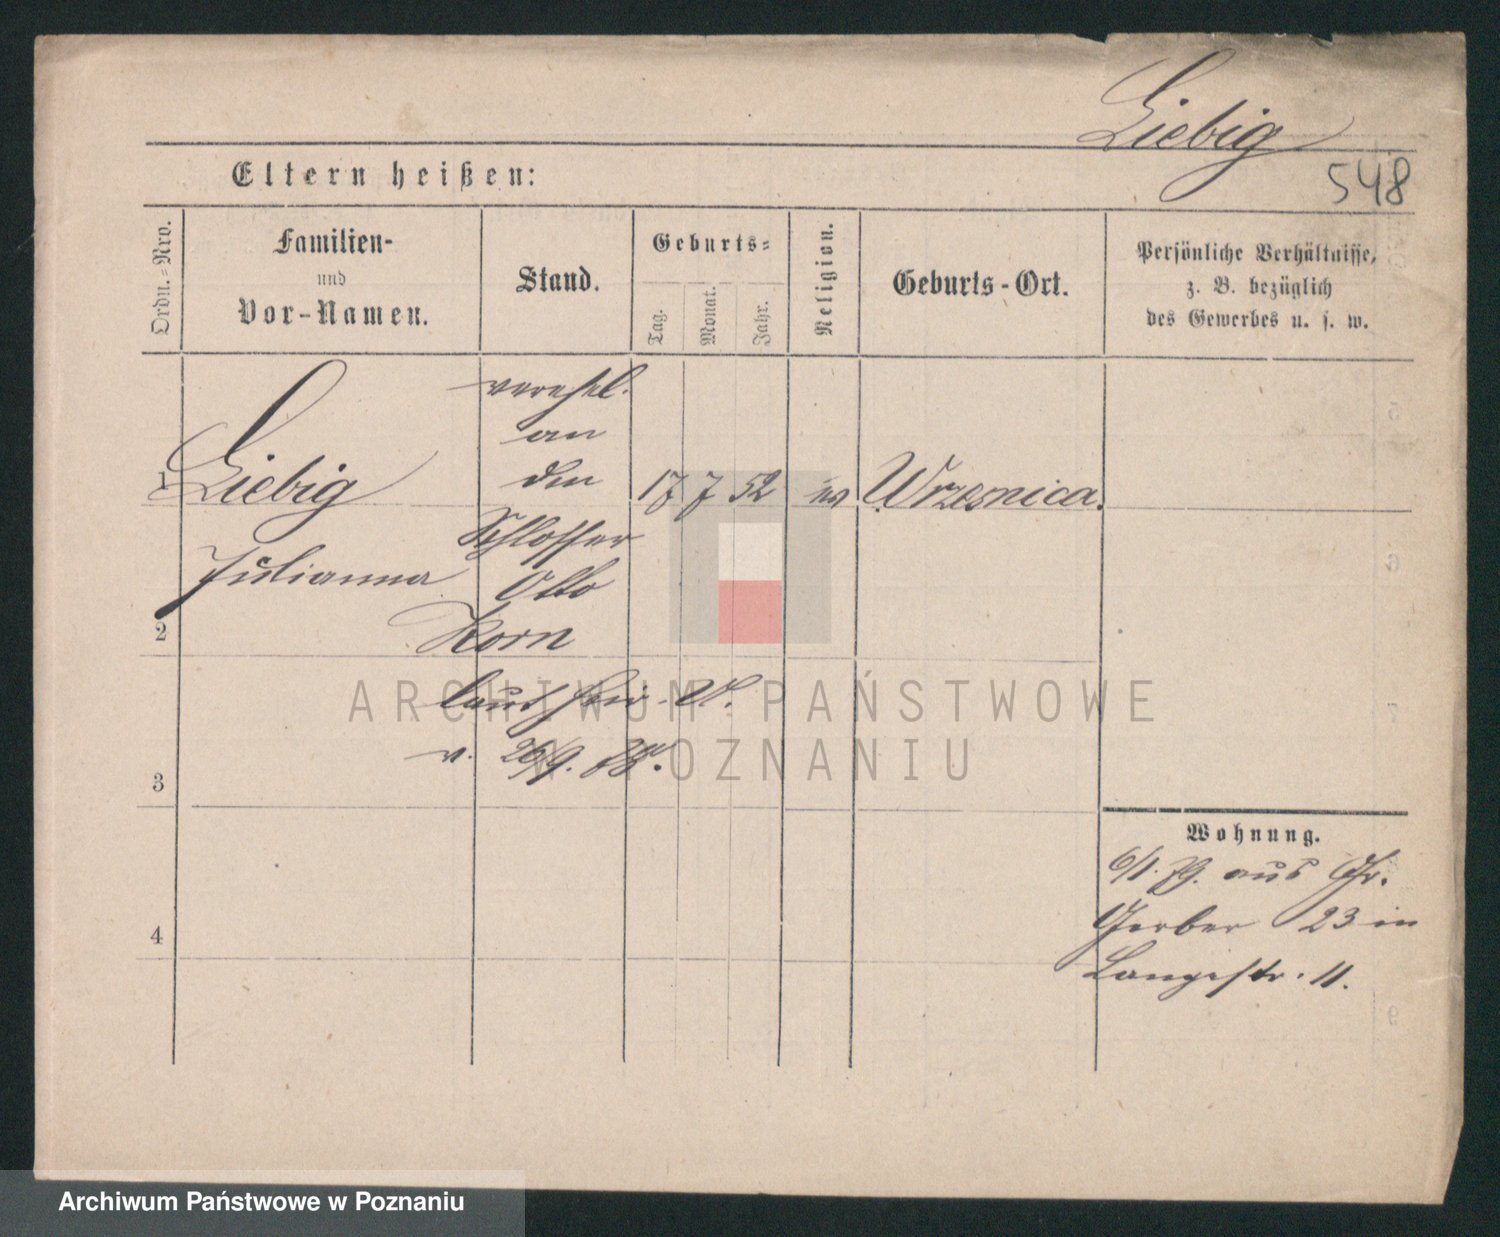 Liebig
548
Eltern heißen:
Ordn.-Nro.
Familien-
und
Vor-Namen.
Stand.
Geburts-
Tag.
Monat.
Jahr.
Religion.
Geburts-Ort.
Persönliche Verhältnisse,
z. B. bezüglich
des Gewerbes u. s. w.
verehel.
an
den
1 Liebig 17 7 52 ev Wrzesnica.
Schlosser
Julianna Otto
2 Korn
laut
v. 26/9. 88.
3
Wohnung.
6/1. 79. aus Gr.
Gerber 23 in
4
Langestr. 11.
ARCHIWUM PAŃSTWOWE
W POZNANIU
Archiwum Państwowe w Poznaniu